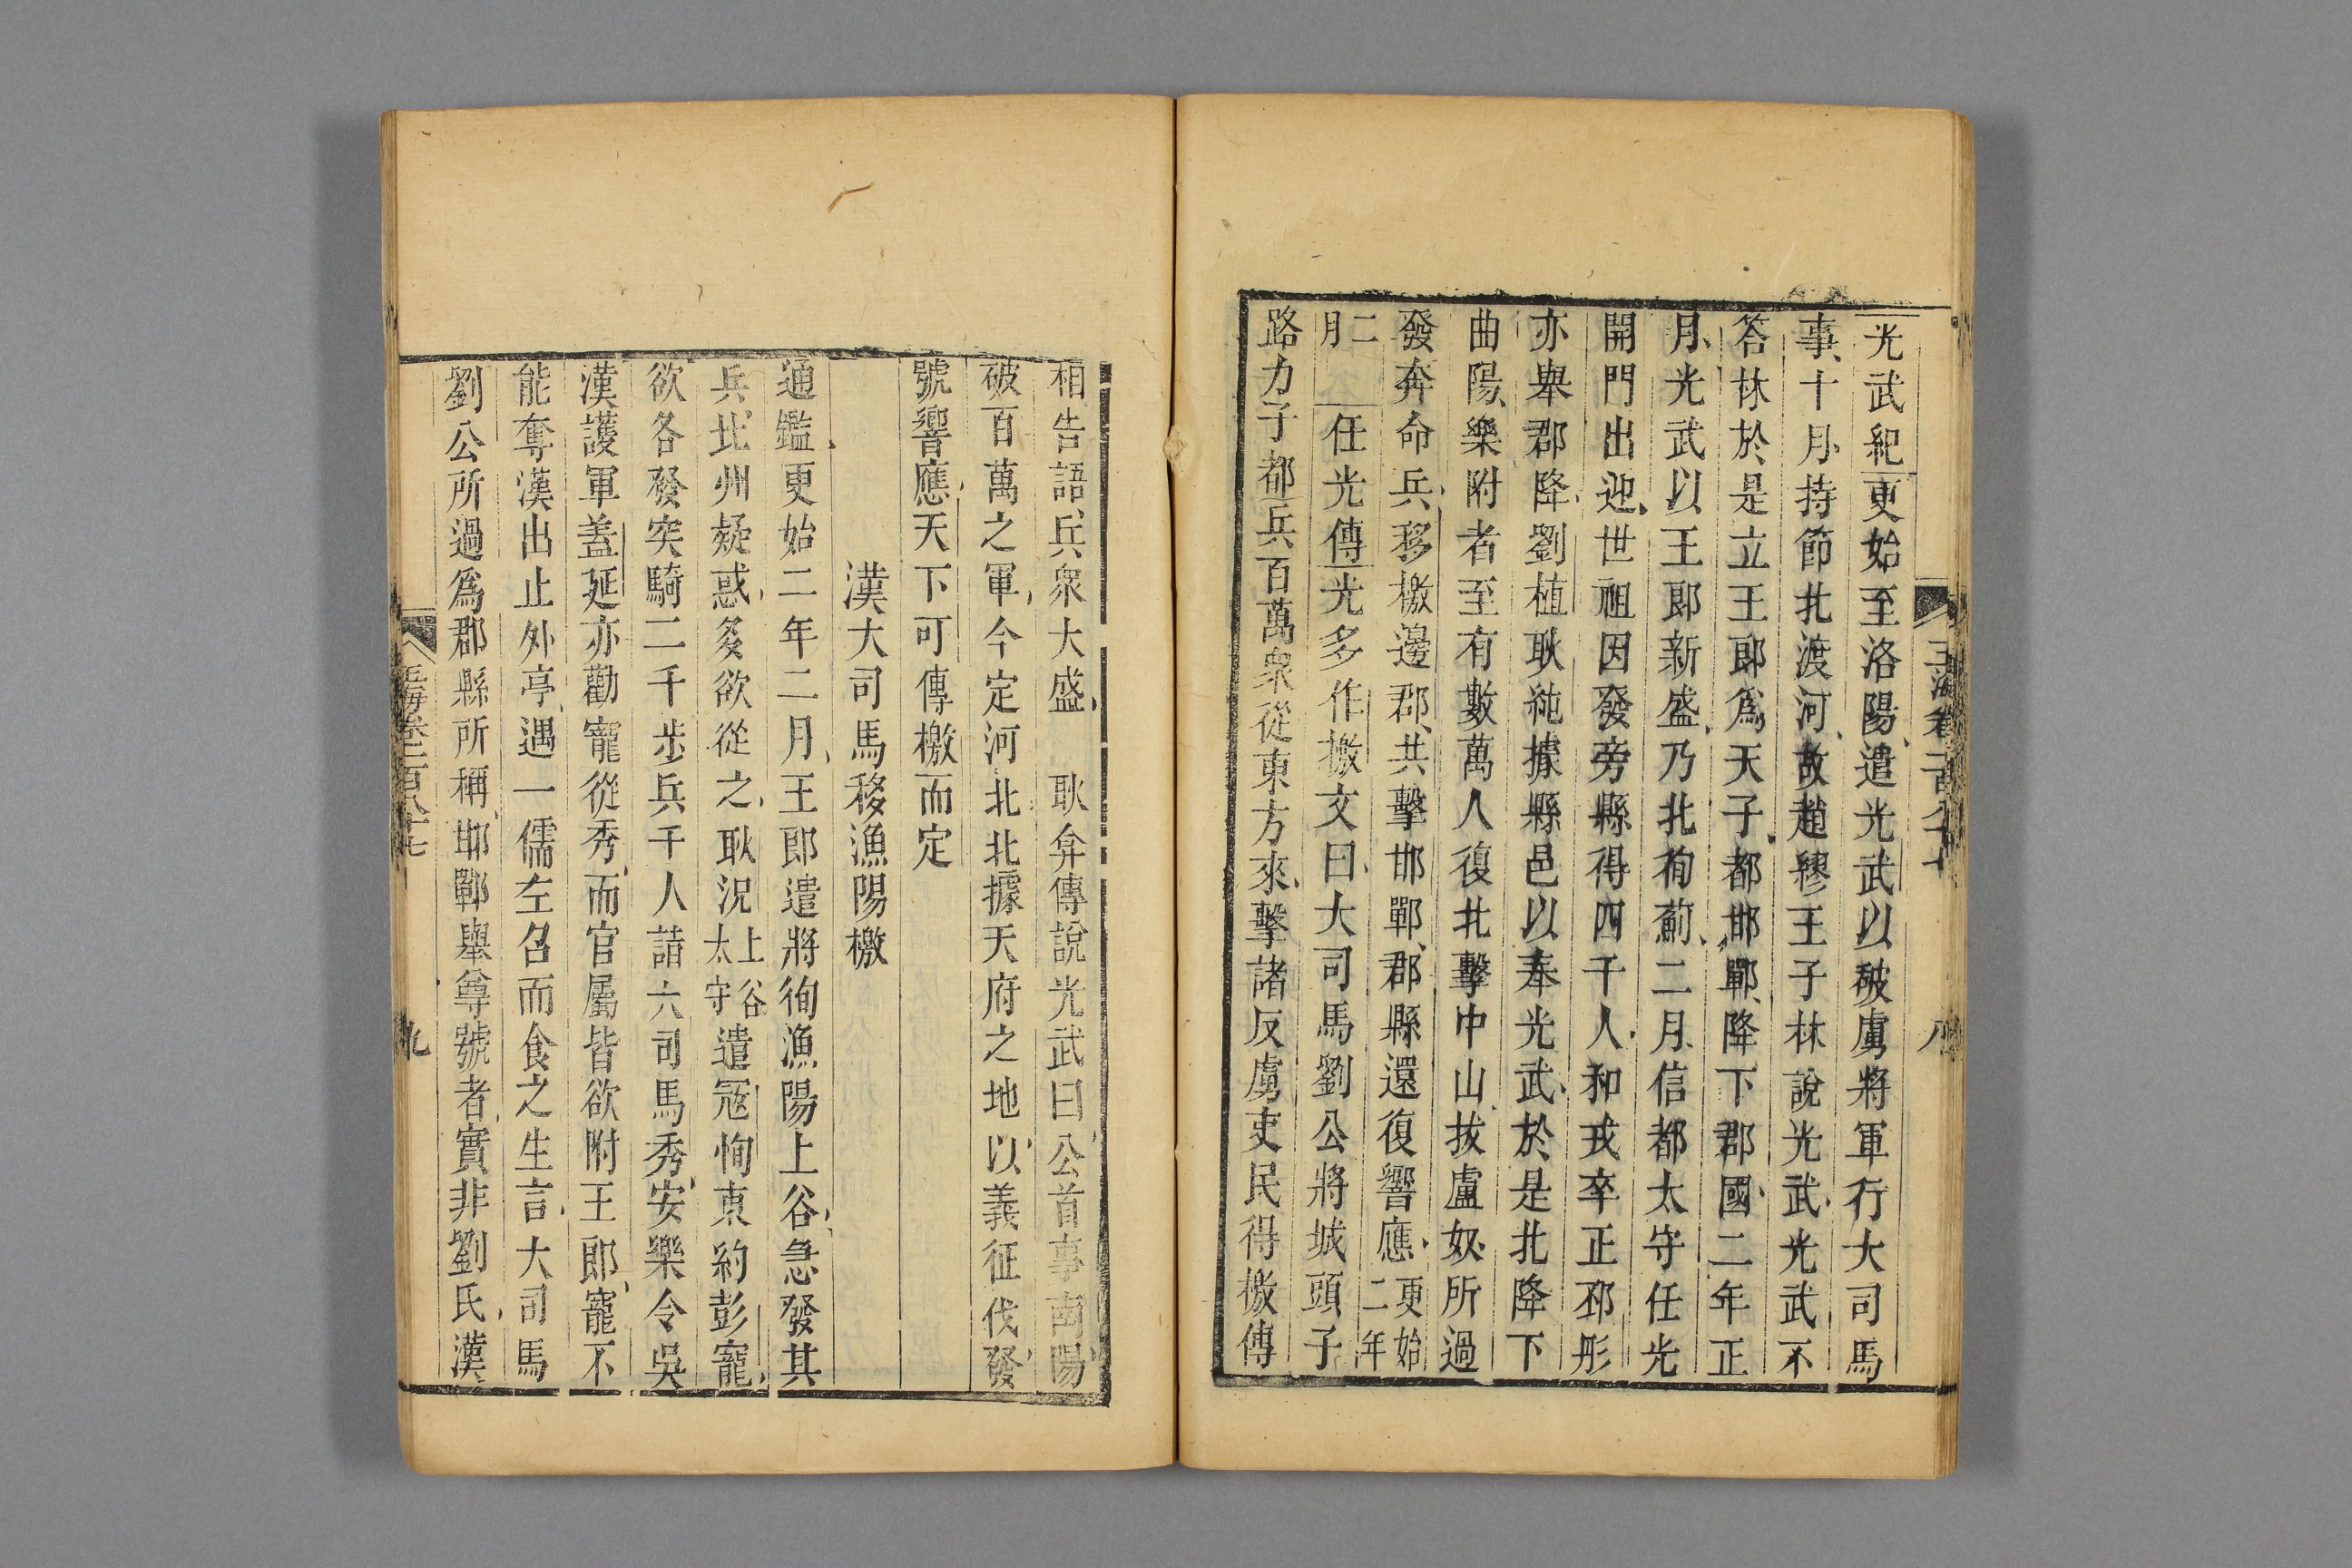 光武紀更始至洛陽遣光武以破虜將軍行大司馬
事十月持節北渡河故趙繆王子林說光武光武不
答林於是立王郎爲天子都邯鄲降下郡國二年正
月光武以王郎新盛乃北徇薊二月信都太守任光
開門出迎世祖因發旁縣得四千人和戎卒正邳彤
亦舉郡降劉植耿純據縣邑以奉光武於是北降下
曲陽樂附者至有數萬人復北擊中山拔盧奴所過
發奔命兵移檄邊郡共擊邯鄲郡縣還復響應更始二年
二月任光傳光多作檄文曰大司馬劉公將城頭子
路力子都兵百萬衆從東方來擊諸反虜吏民得檄傳
玉海卷二百八十七 八
相告語兵衆大盛 耿弇傳說光武曰公首事南陽
破百萬之軍今定河北北據天府之地以義征伐發
號響應天下可傳檄而定
漢大司馬移漁陽檄
通鑑更始二年二月王郎遣將徇漁陽上谷急發其
兵北州疑惑多欲從之耿況上谷太守遣寇恂東約彭寵
欲各發突騎二千步兵千人詣大司馬秀安樂令吳
漢護軍蓋延亦勸寵從秀而官屬皆欲附王郎寵不
能奪漢出止外亭遇一儒生召而食之生言大司馬
劉公所過爲郡縣所稱邯鄲舉尊號者實非劉氏漢
玉海卷二百八十七 九